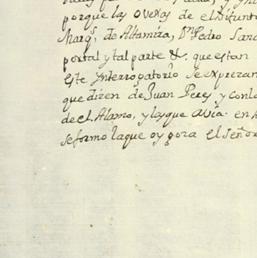 porque las ovejas de el Difunto
Marq.s de Altamira, D.n Pedro
portal y tal parte &. que estan
este Interrogatorio se expresan
que dizen de Juan Peres y con
de el Alamo, y la que avia en
se formo la que oy goza el Señor